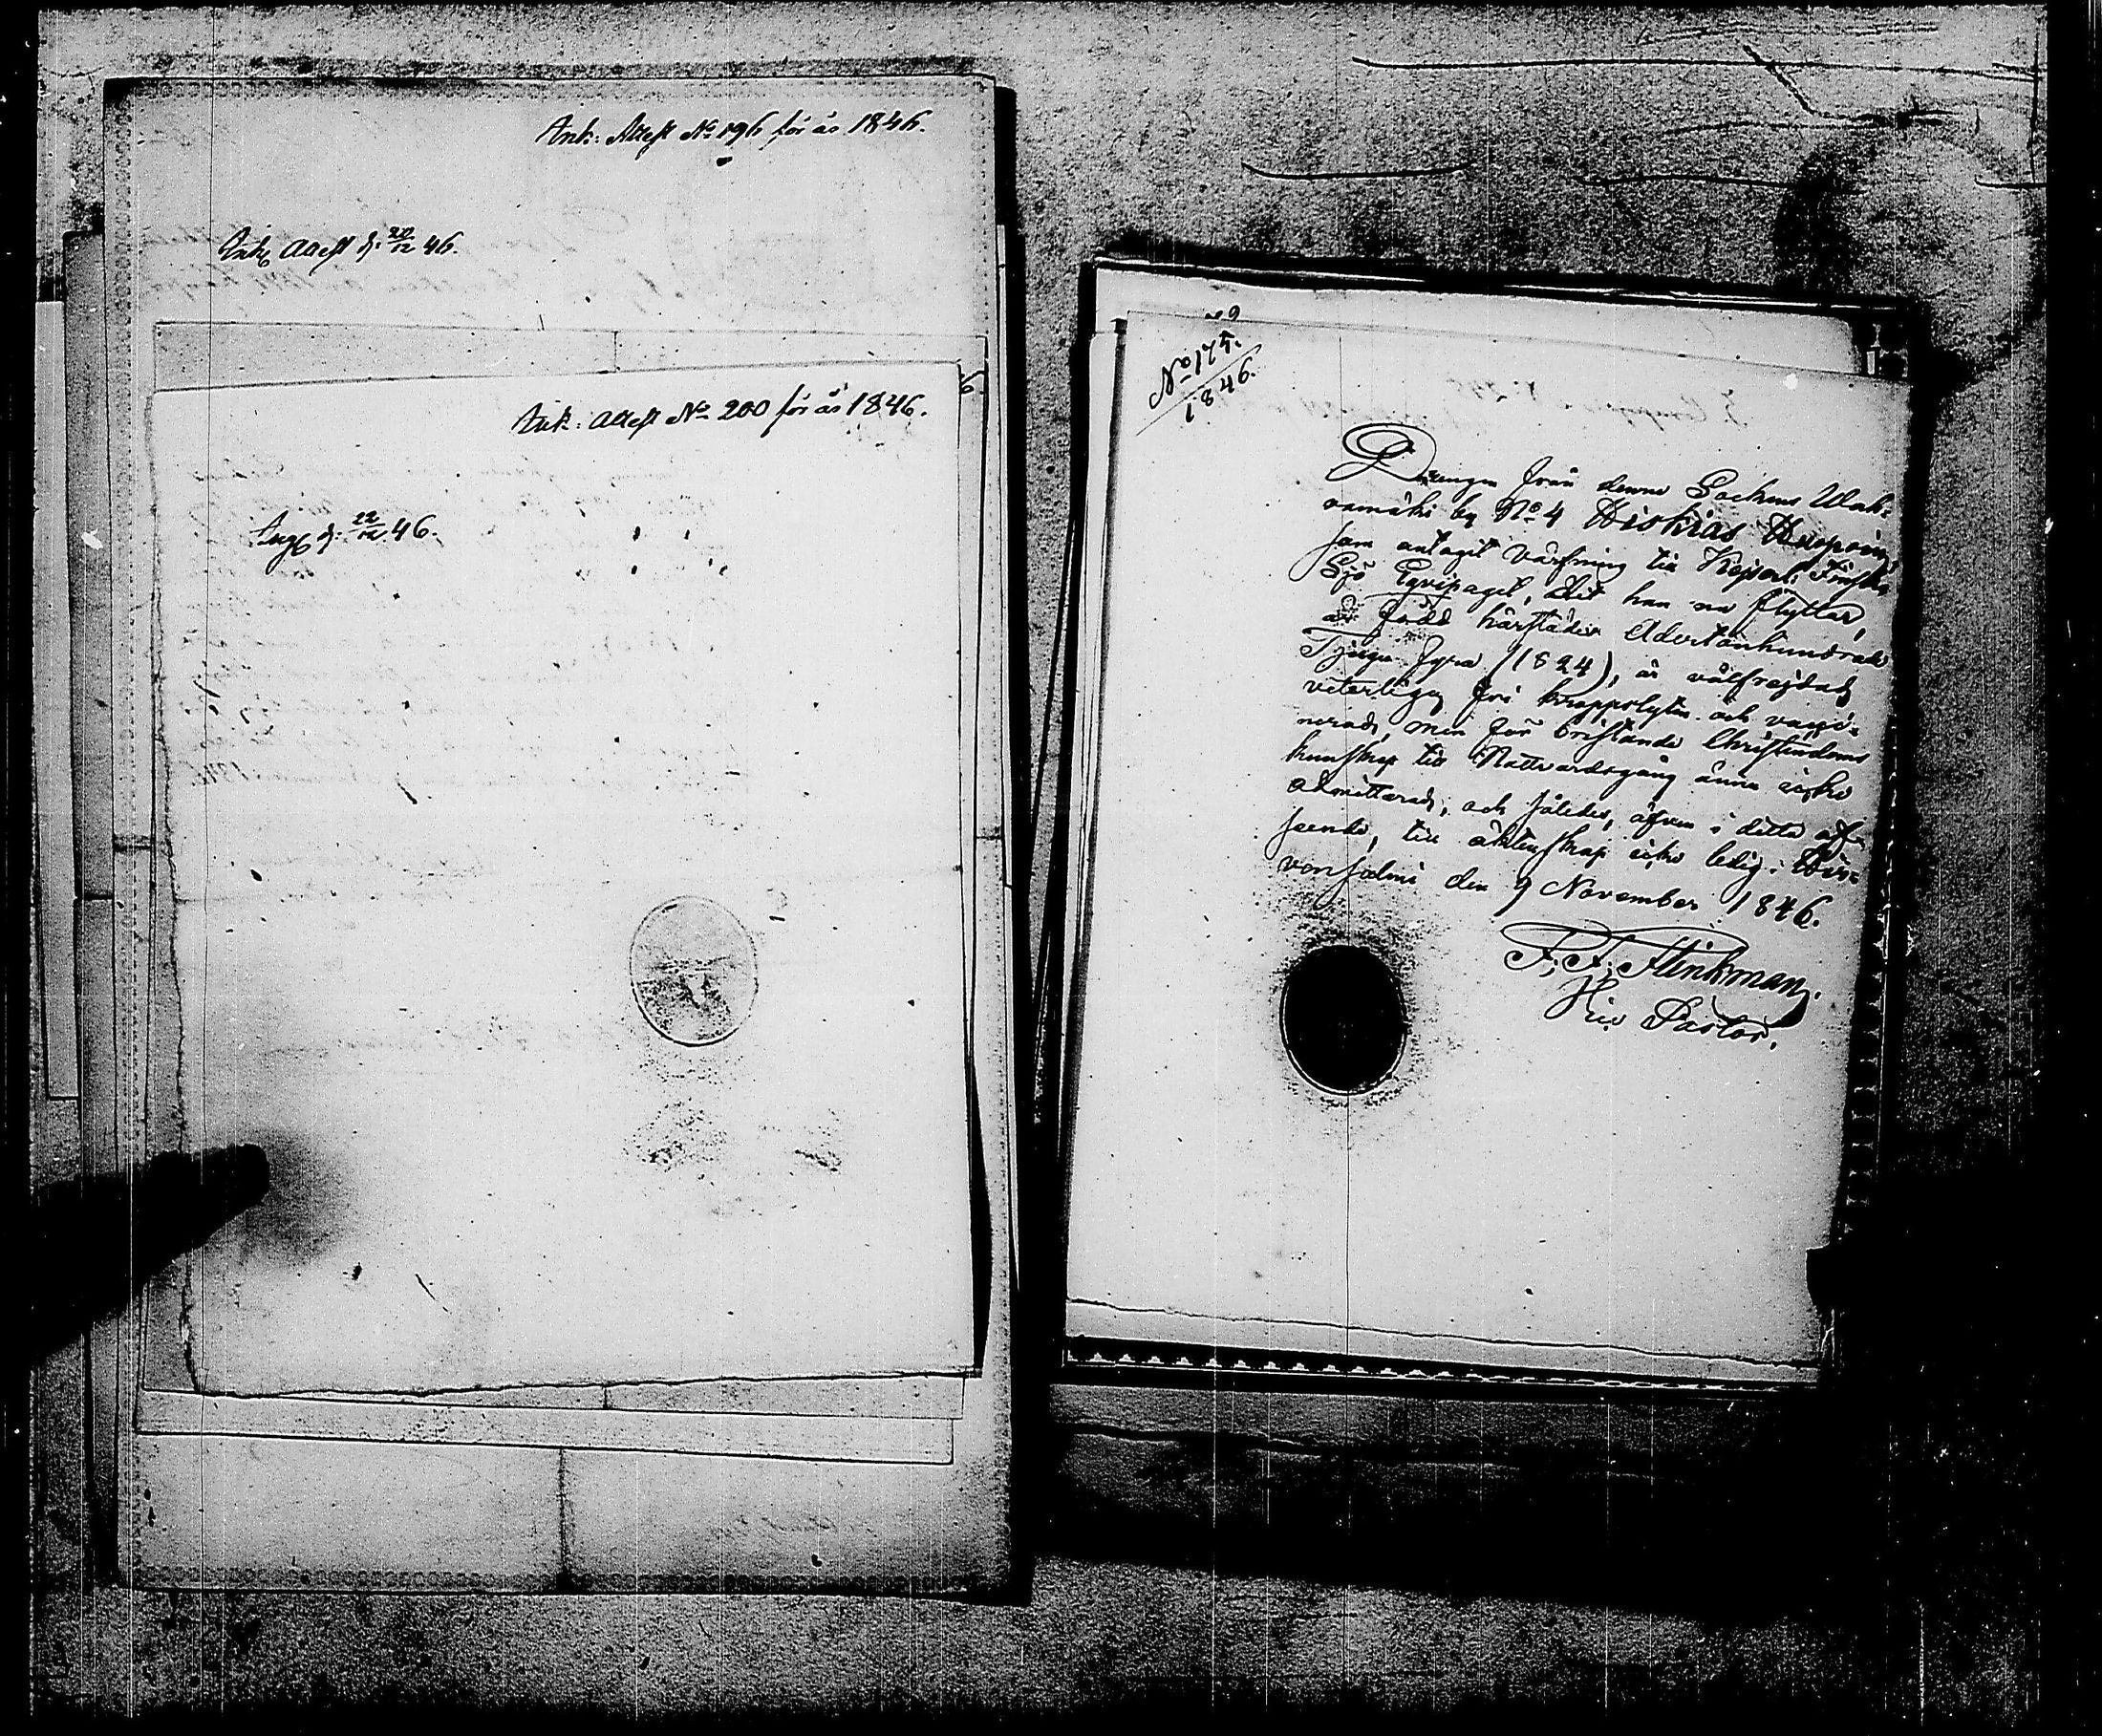 Ank: Attest No 196 för år 1846.
Ank: Attest d: 20/12 46.
Ank: Attest No 200 för år 1846.
d: 22/12 46.
79
No 175.
1846.
Drengen från denna Sochens Wah-
vamäki by No 4 Hiskias
som antagit värfning till Kejserl: Finska
Sjö Eqvipaget, dit han nu flyttar,
är född härstädes Adertonhundrade
Tjugu Fyra (1824), är välfrejdad,
veterligen fri kroppslyten och vacci-
nerad, men för bristande Christendoms
kunskap till Nattvardsgång ännu icke
admitterad, och således, äfven i detta af-
seende, till äktenskap icke ledig. Hir-
vensalmi den 9 November 1846.
F. F. Flinkman.
Vice Pastor.